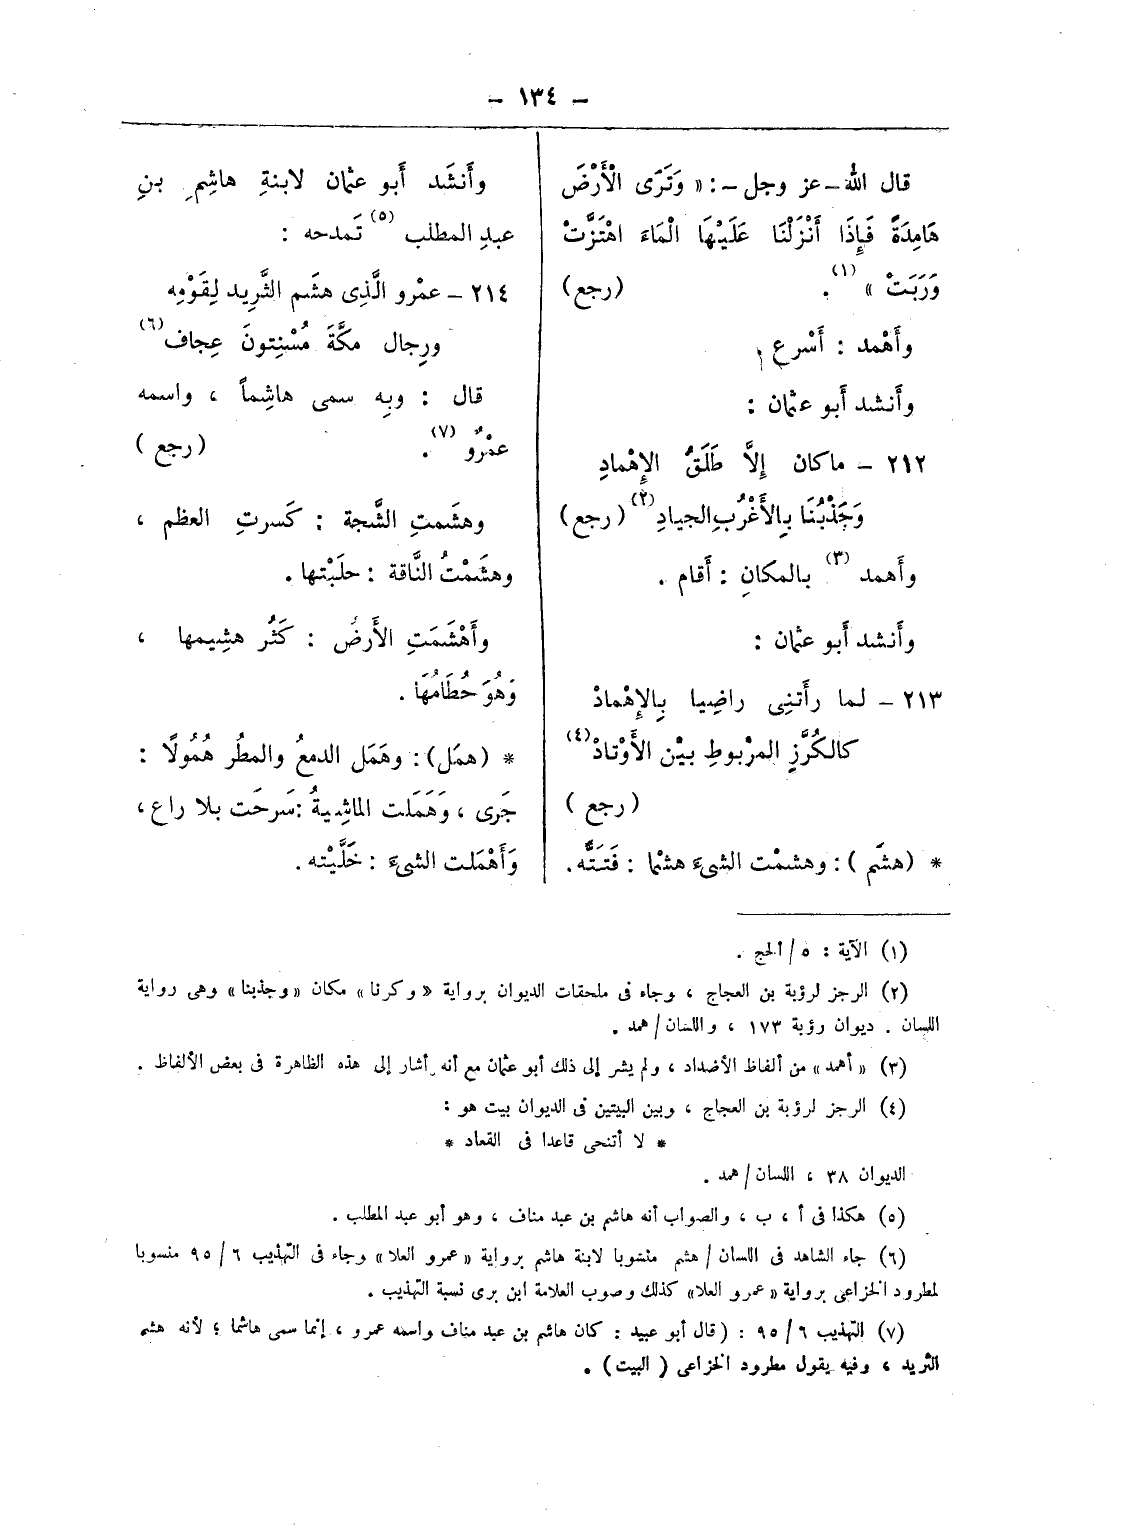 – ١٣٤ –
قال الله – عز وجل – : « وَتَرَى الْأَرْضَ
هَامِدَةً فَإِذَا أَنْزَلْنَا عَلَيْهَا الْمَاءَ اهْتَزَّتْ
وَرَبَتْ » (١) . (رجع)
وأَهْمد : أَسْرع ،
وأَنشد أَبو عثمان :
٢١٢ – ماكان إِلاَّ طَلَقُ الإِهْمادِ
وَجَذْبُنَا بِالأَغْرُبِ الجيادِ (٢) (رجع)
وأَهمد (٣) بالمكانِ : أَقام .
وأَنشد أَبو عثمان :
٢١٣ – لما رأَتنِى راضِيا بِالإِهْمادْ
كالكُرَّزِ المرْبوطِ بيْن الأَوْتادْ (٤)
(رجع)
* (هشَم) : وهشمْت الشىءَ هشْما : فَتَتُّه.
وأَنشَد أَبو عثمان لابنةِ هاشِمِ بنِ
عبدِ المطلب (٥) تَمدحه :
٢١٤ – عمْرو الَّذِى هشَم الثَّرِيد لِقَوْمِه
ورِجال مكَّةَ مُسْنِتونَ عِجاف (٦)
قال : وبِه سمى هاشِماً ، واسمه
عمْرٌو (٧) . (رجع)
وهشَمتِ الشَّجة : كَسرتِ العظم ،
وهشَمْتُ النَّاقة : حلَبْتها .
وأَهْشَمَتِ الأَرضُ : كَثُر هشِيمها ،
وَهُوَ حُطَامُهَا .
* (همَل) : وهَمَل الدمعُ والمطُر هُمُولًا :
جَرى ، وَهَمَلت الماشِيةُ : سَرحَت بلا راع ،
وَأَهْمَلت الشىءَ : خَلَّيْته .
(١) الآية : ٥ / الحج .
(٢) الرجز لرؤبة بن العجاج ، وجاء فى ملحقات الديوان برواية « وكرنا » مكان « وجذبنا » وهى رواية
اللسان . ديوان رؤبة ١٧٣ ، واللسان / همد .
(٣) « أهمد » من ألفاظ الأضداد ، ولم يشر إلى ذلك أبو عثمان مع أنه أشار إلى هذه الظاهرة فى بعض الألفاظ .
(٤) الرجز لرؤبة بن العجاج ، وبين البيتين فى الديوان بيت هو :
* لا أتنحى قاعدا فى القعاد *
الديوان ٣٨ ، اللسان / همد .
(٥) هكذا فى أ ، ب ، والصواب أنه هاشم بن عبد مناف ، وهو أبو عبد المطلب .
(٦) جاء الشاهد فى اللسان / هشم منسوبا لابنة هاشم برواية « عمرو العلا » وجاء فى التهذيب ٦ / ٩٥ منسوبا
لمطرود الخزاعى برواية « عمرو العلا » كذلك وصوب العلامة ابن برى نسبة التهذيب .
(٧) التهذيب ٦ / ٩٥ : ( قال أبو عبيد : كان هاشم بن عبد مناف واسمه عمرو ، إنما سمى هاشما ؛ لأنه هشم
الثريد ، وفيه يقول مطرود الخزاعى ( البيت ) .